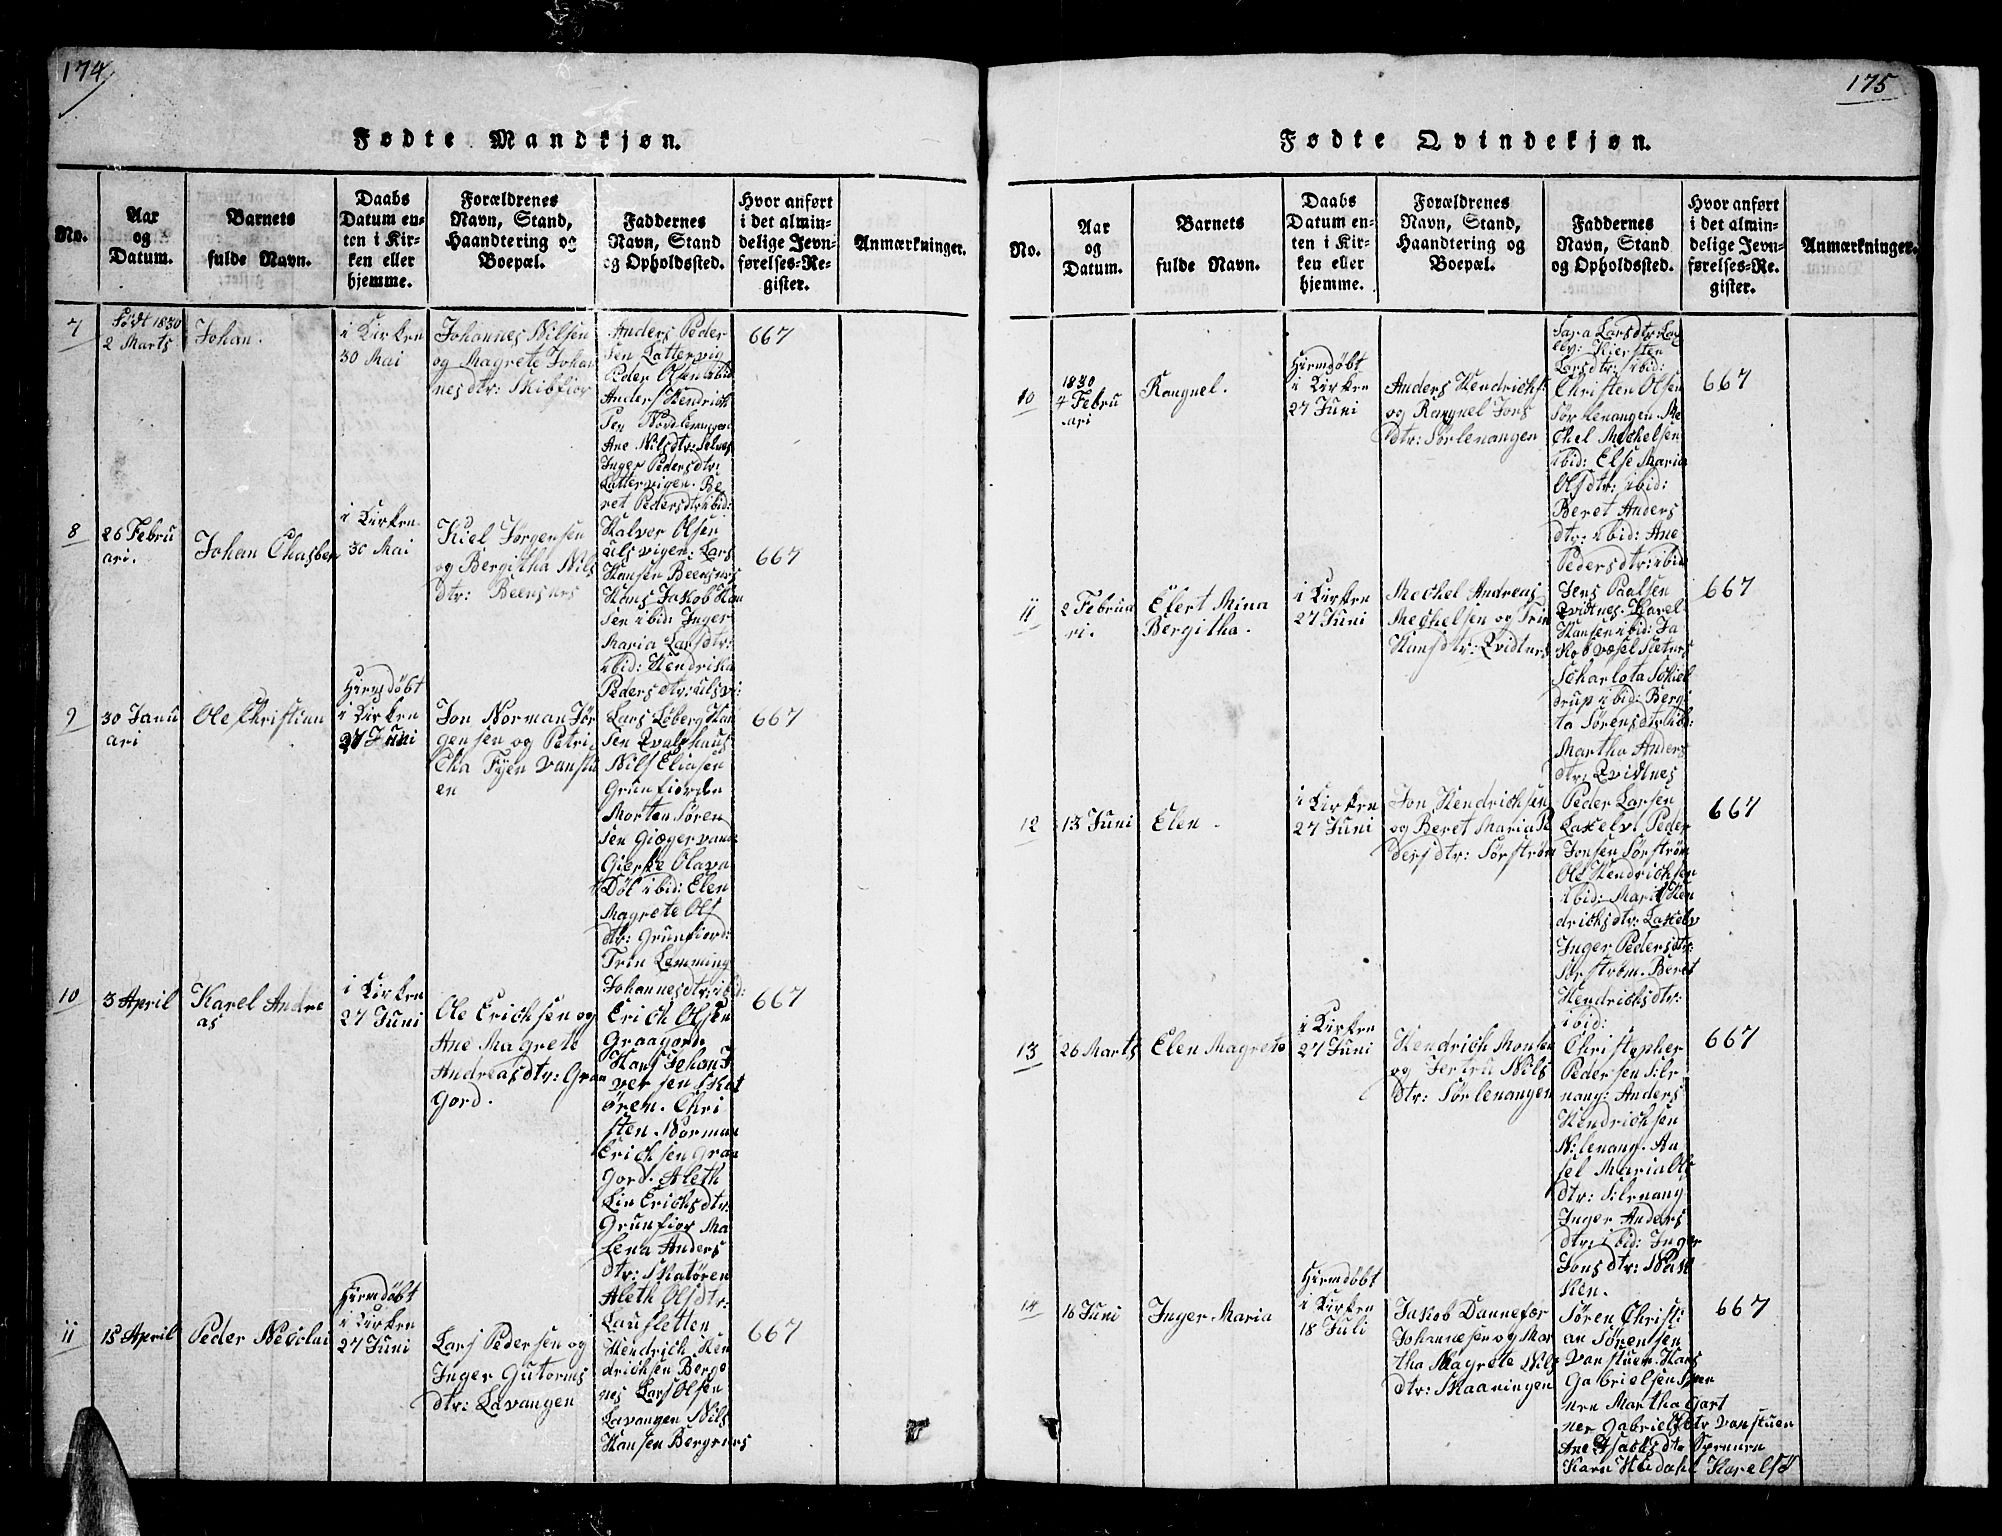 174
Fødte Mandkjøn.
No.
Aar
og
Datum.
Barnets
fulde Navn.
Daabs
Datum en-
ten i Kir-
ken eller
hjemme.
Forældrenes
Navn, Stand,
Haandtering og
Boepæl.
Faddernes
Navn, Stand
og Opholdssted.
Hvor anført
i det almin-
delige Jevn-
førelses-Re-
gister.
Anmærkninger.
7
Født 1830
2 Marts
Johan.
i Kirken
30 Mai
Johannes Nilsen
og Magrete Johan
nesdtr: Skibfior
Anders Peder
sen Lattervig
Peder Olsen ibid
Anders Hendrich
sen Nordlenangen
Ane Nilsdtr: Selnes
Inger Pedersdtr:
Lattervigen. Be
ret Pedersdtr: ibid:
667
8
26 Febru
ari.
Johan Chasber
i Kirken
30 Mai
Kiel Jørgensen
og Bergitha Nils
dtr: Beensnes
Halvor Olsen
ulsvigen: Lars
Hansen Beensnes
Hans Jakob Han
sen ibid: Inger
Maria Larsdtr:
ibid: Hendrika
Pedersdtr: ulsvi:
667
9
30 Janu
ari
Ole Christian
Hiemdøbt
i Kirken
27 Juni
Jon Norman Jør
gensen og Petri
cha Fyen Vanstu
en
Lars Løberg Han
sen Qvalshaus
Nils Eliasen
Grunfiorden
Morten Søren
sen Giæger vand
Gierske Olava
Døl ibid: Elen
Magrete Ols
dtr: Grunfiord:
Trin Lemming
Johannesdtr: ibid:
667
10
3 April
Karel Andre
as
i Kirken
27 Juni
Ole Erichsen og
Ane Magrete
Andreasdtr: Graa
gord.
Erich Olsen
Graagord.
Hans Johan I
versen Skat
ören. Chri
sten Norman
Erichsen Graa
gord. Aleth
Lin Erichsdtr:
Grunfior Ma
lena Anders
dtr: Skatören
667
11
15 April
Peder Nicolai
Hiemdøbt
i Kirken
27 Juni
Lars Pedersen og
Inger Gutorms
dtr: Lavangen
Aleth Olsdtr:
Lausletten
Hendrich Hen
drichsen Berge
nes Lars Olsen
Lavangen Nils
Hansen Bergnes
667
175
Fødte Qvindekjøn.
No.
Aar
og
Datum.
Barnets
fulde Navn.
Daabs
Datum en-
ten i Kir-
ken eller
hjemme.
Forældrenes
Navn, Stand,
Haandtering og
Boepæl.
Faddernes
Navn, Stand
og Opholdssted.
Hvor anført
i det almin-
delige Jevn-
førelses-Re-
gister.
Anmærkninger.
10
1830
4 Febru
ari
Rangnel.
Hiemdøbt
i Kirken
27 Juni
Anders Hendrichs
og Rangnel Jons
dtr: Sørlenangen
Sara Larsdtr: Lax
elv: Kiersten
Larsdtr: ibid:
Christen Olsen
Sørlenangen. Me
chel Mechelsen
ibid: Else Maria
Olsdtr: ibid:
Beret Anders
dtr: ibid: Ane
Pedersdtr: ibid
667
11
2 Februa
ri.
Elert Mina
Bergitha.
i Kirken
27 Juni
Mechel Andreas
Mechelsen og Trin
Hansdtr: Qvidtnes
Jens Paalsen
Qvidtnes. Karel
Hansen ibid: Ja
kob Væsel Sletnes
Scharlota Schiel
drup ibid: Bergi
ta Sørensdtr: ibid:
Martha Anders
dtr: Qvidtnes
667
12
13 Juni
Elen.
i Kirken
27 Juni
Jon Hendrichsen
og Beret Maria Pe
dersdtr: Sørstrøm
Peder Larsen
Laxelv Peder
Jonsen Sørstrøm
Ole Hendrichsen
ibid: Marit Hen
drichsdtr: Laxelv
Inger Pedersdtr:
Sørstrøm. Beret
Hendrichsdtr:
ibid:
667
13
26 Marts
Elen Magrete
i Kirken
27 Juni
Hendrich Monsen
og Jertru Nils
dtr: Sørlenangen
Christopher
Pedersen S:le
nang: Anders
Hendrichsen
N:lenang. An
sel Maria Ols
dtr: S:lenang
Inger Anders
dtr: ibid: Inger
Jonsdtr: Nak
ken.
667
14
16 Juni
Inger Maria
Hiemdøbt
i Kirken
18 Juli
Jakob Dannefær
Johannesen og Mar
tha Magrete Nils
dtr: Skaaningen
Søren Christi
an Sørensen
Vanstuen. Hans
Gabrielsen Spen
nen Martha Gart
ner Gabrielsdtr Vanstuen
Ane Isachsdtr Spennen
Karn Hedahl Karelsö
667